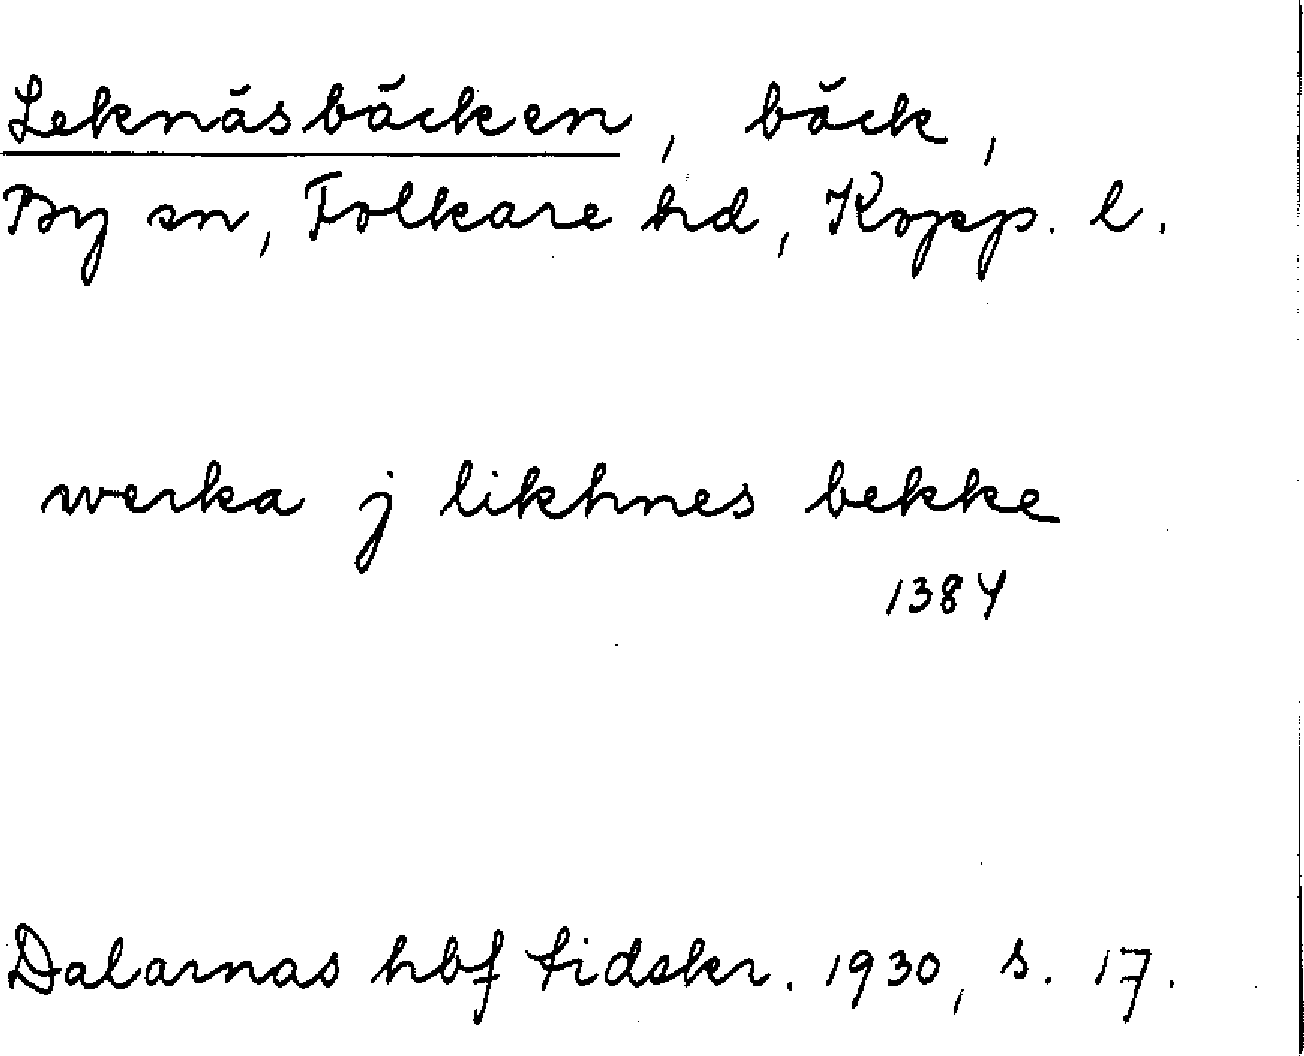 Leknäsbäcken, bäck,
By sn, Folkare hd, Kopp. l.
werka j likhnes bekke
1384
Dalarnas hbf tidskr. 1930, s. 17.